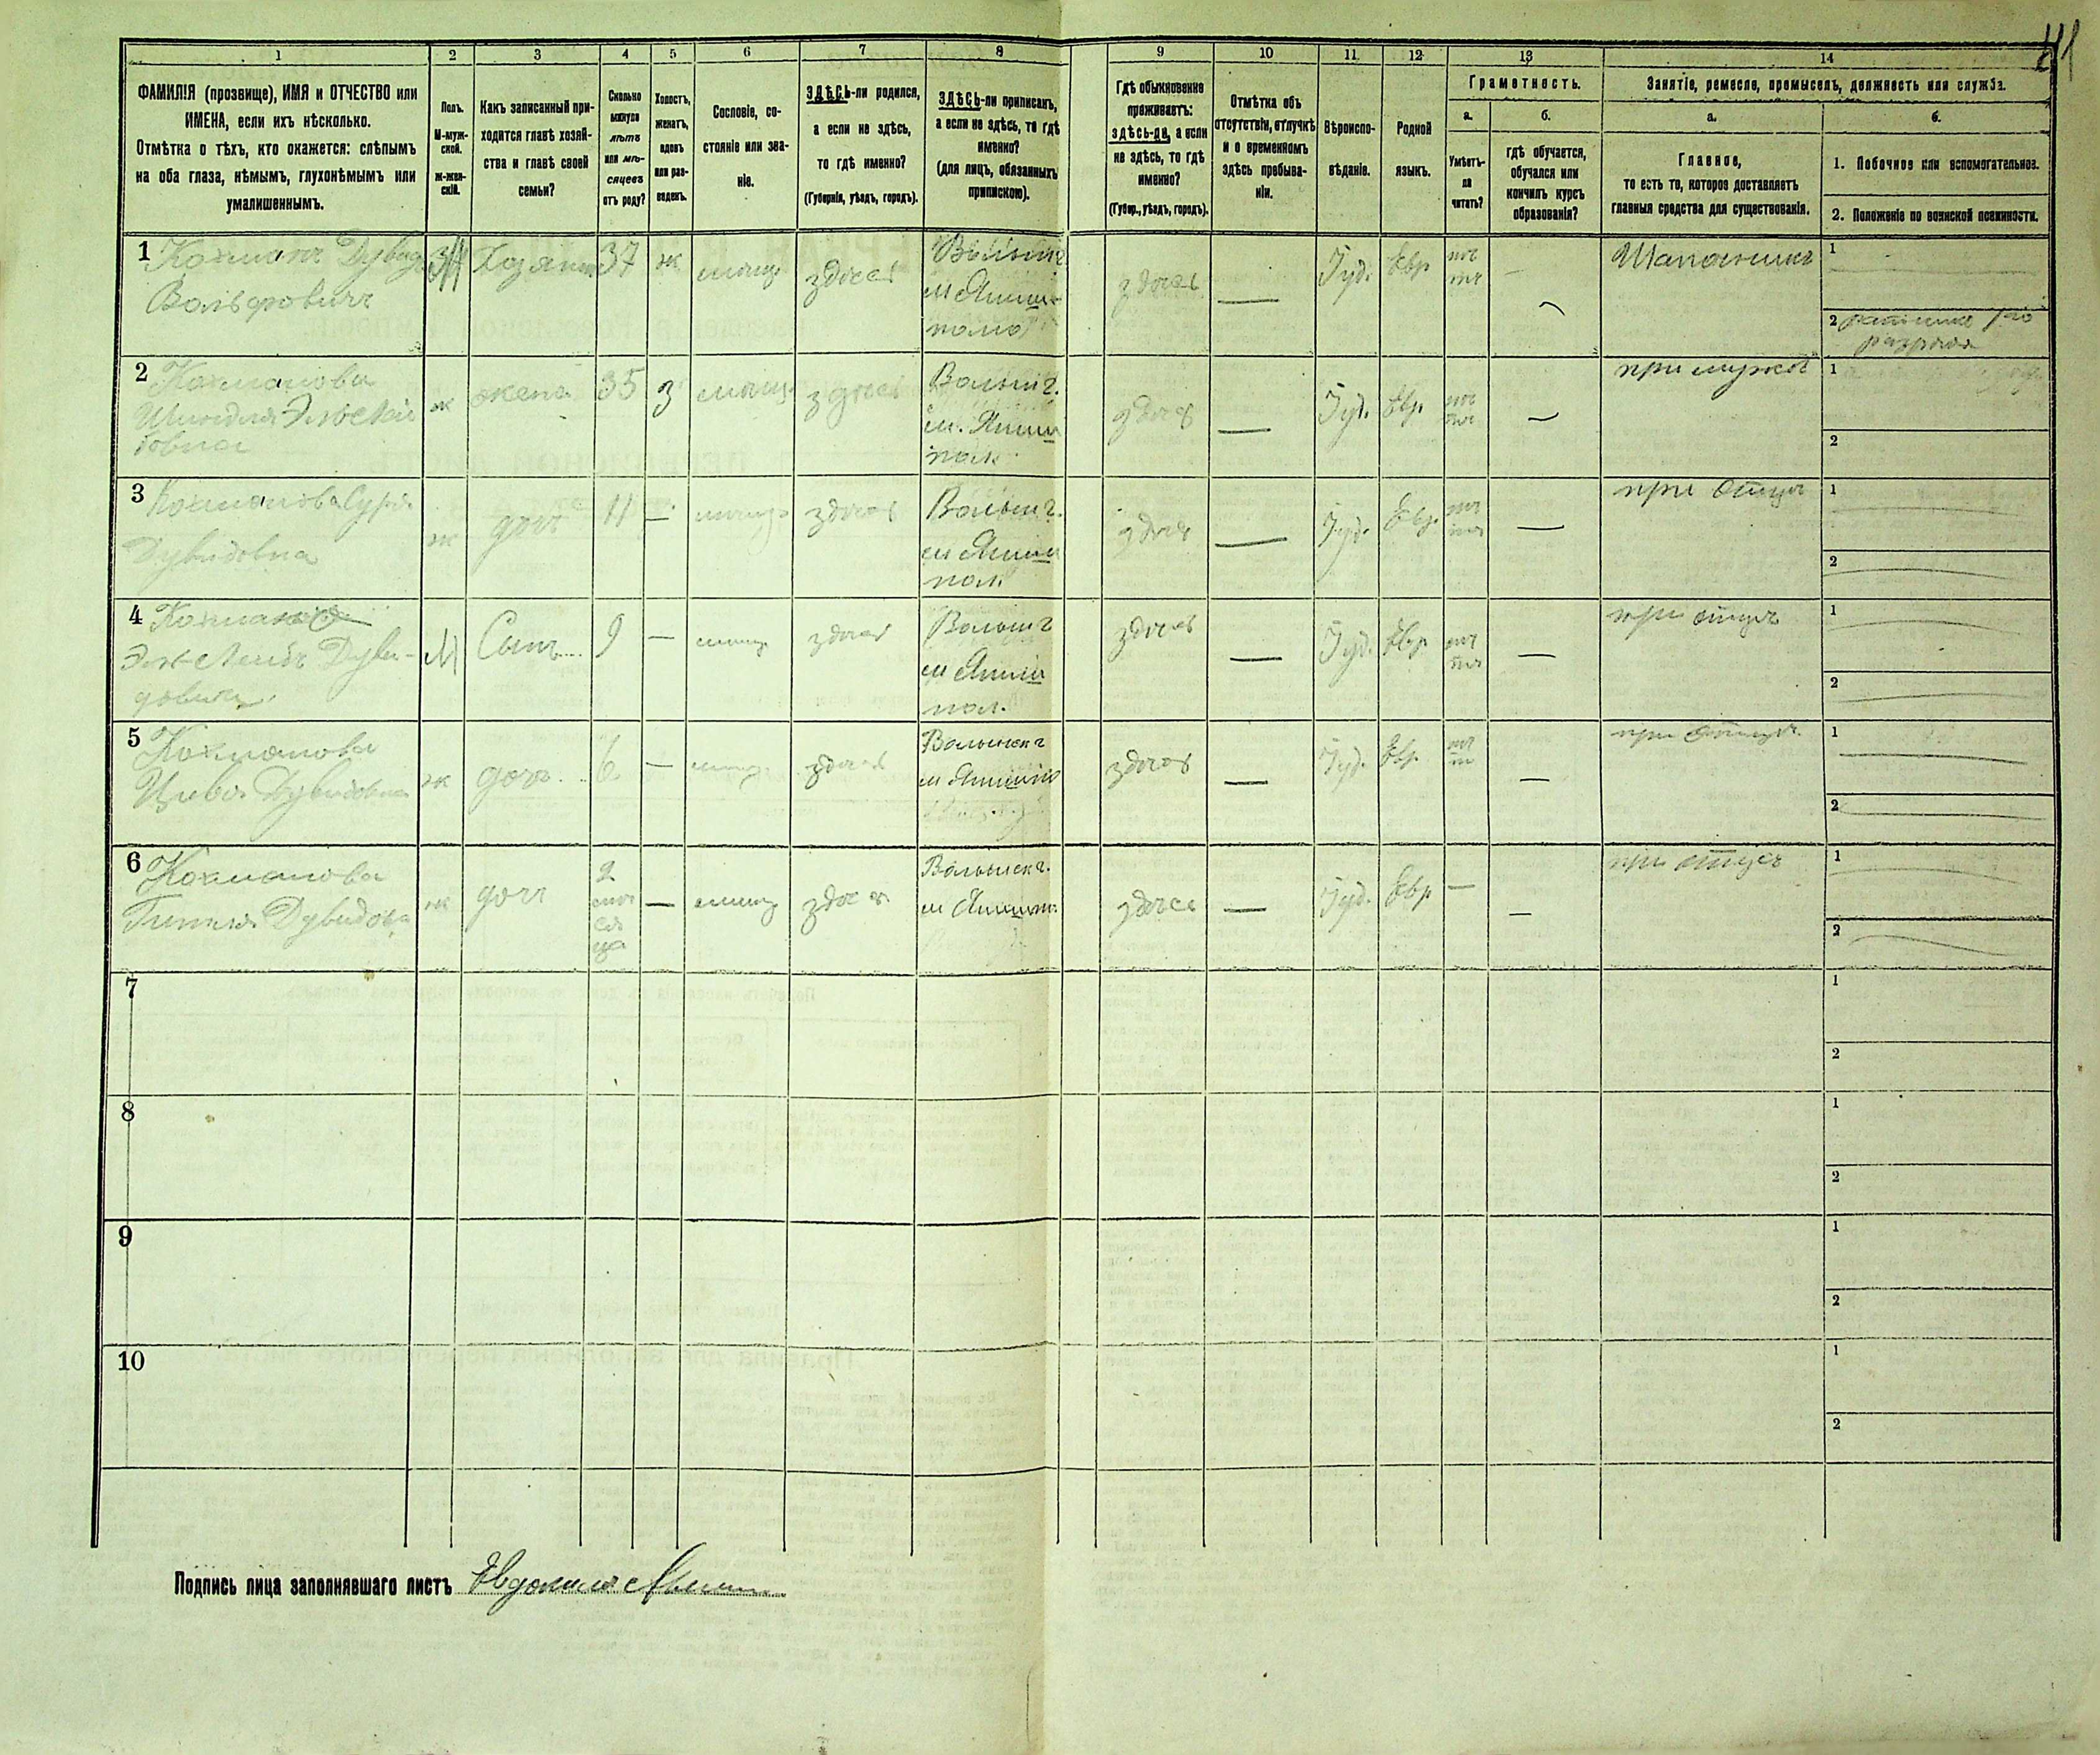 41
1 2 3 4 5 6 7 8 9 10 11 12 13 14
ФАМИЛІЯ (прозвище), ИМЯ и ОТЧЕСТВО или
ИМЕНА, если ихъ нѣсколько.
Отмѣтка о тѣхъ, кто окажется: слѣпымъ
на оба глаза, нѣмымъ, глухонѣмымъ или
умалишеннымъ.
Полъ.
М-муж-
ской.
ж-жен-
скій.
Какъ записанный при-
ходится главѣ хозяй-
ства и главѣ своей
семьи?
Сколько
минуло
лѣтъ
или мѣ-
сяцевъ
отъ роду?
Холостъ,
женатъ,
вдовъ
или раз-
веденъ.
Сословіе, со-
стояніе или зва-
ніе.
ЗДѢСЬ-ли родился,
а если не здѣсь,
то гдѣ именно?
(Губернія, уѣздъ, городъ).
ЗДѢСЬ-ли приписанъ,
а если не здѣсь, то гдѣ
именно?
(для лицъ, обязанныхъ
припискою).
Гдѣ обыкновенно
проживаетъ:
здѣсь-ли, а если
не здѣсь, то гдѣ
именно?
(Губер., уѣздъ, городъ).
Отмѣтка объ
отсутствіи, отлучкѣ
и о временномъ
здѣсь пребыва-
ніи.
Вѣроиспо-
вѣданіе.
Родной
языкъ.
Грамотность.
а.
Умѣетъ-
ли
читать?
б.
гдѣ обучается,
обучался или
кончилъ курсъ
образованія?
Занятіе, ремесло, промыселъ, должность или служба.
а.
Главное,
то есть то, которое доставляетъ
главныя средства для существованія.
б.
1. Побочное или вспомогательное.
2. Положеніе по воинской повинности.
1 Кохманъ Дувид
Вольфовичъ
М Хозяинъ 37 ж мѣщ здѣсь
Волын г
м Ямпи-
здѣсь — Іуд. Евр нѣ
тъ — Шапошникъ 1
2 ратникъ
разряда
2 Кохманова
ж жена 35 з мѣщ. здѣсь
Волын г.
м. Ямпи
пол.
здѣсь — Іуд. Евр нѣ
тъ — при мужѣ 1
2
3 Кохманова Сура
Дувидовна
ж дочь 11 — мѣщ здѣсь
Волын г.
м Ямпи
пол.
здѣсь — Іуд. Евр. нѣ
тъ — при отцѣ 1
2
4 Кохман
Дуви-
довичъ
М Сынъ 9 — мѣщ здѣсь
Волын г
м Ямпи
пол.
здѣсь — Іуд. Евр нѣ
тъ — при отцѣ 1
2
5 Кохманова
Цивья Дувидовна
ж дочь 6 — мѣщ. здѣсь
Волынск г
м Ямпипо
здѣсь — Іуд. Евр. нѣ
тъ — при отцѣ 1
2
6 Кохманова
Дувидова
ж дочь 2
мѣ
ся
ца
— мѣщ здѣсь
Волынск г.
м Ямпип.
здѣсь — Іуд. Евр — — при отцѣ 1
2
7 1
2
8 1
2
9 1
2
10 1
2
Подпись лица заполнявшаго листъ Евдокимъ